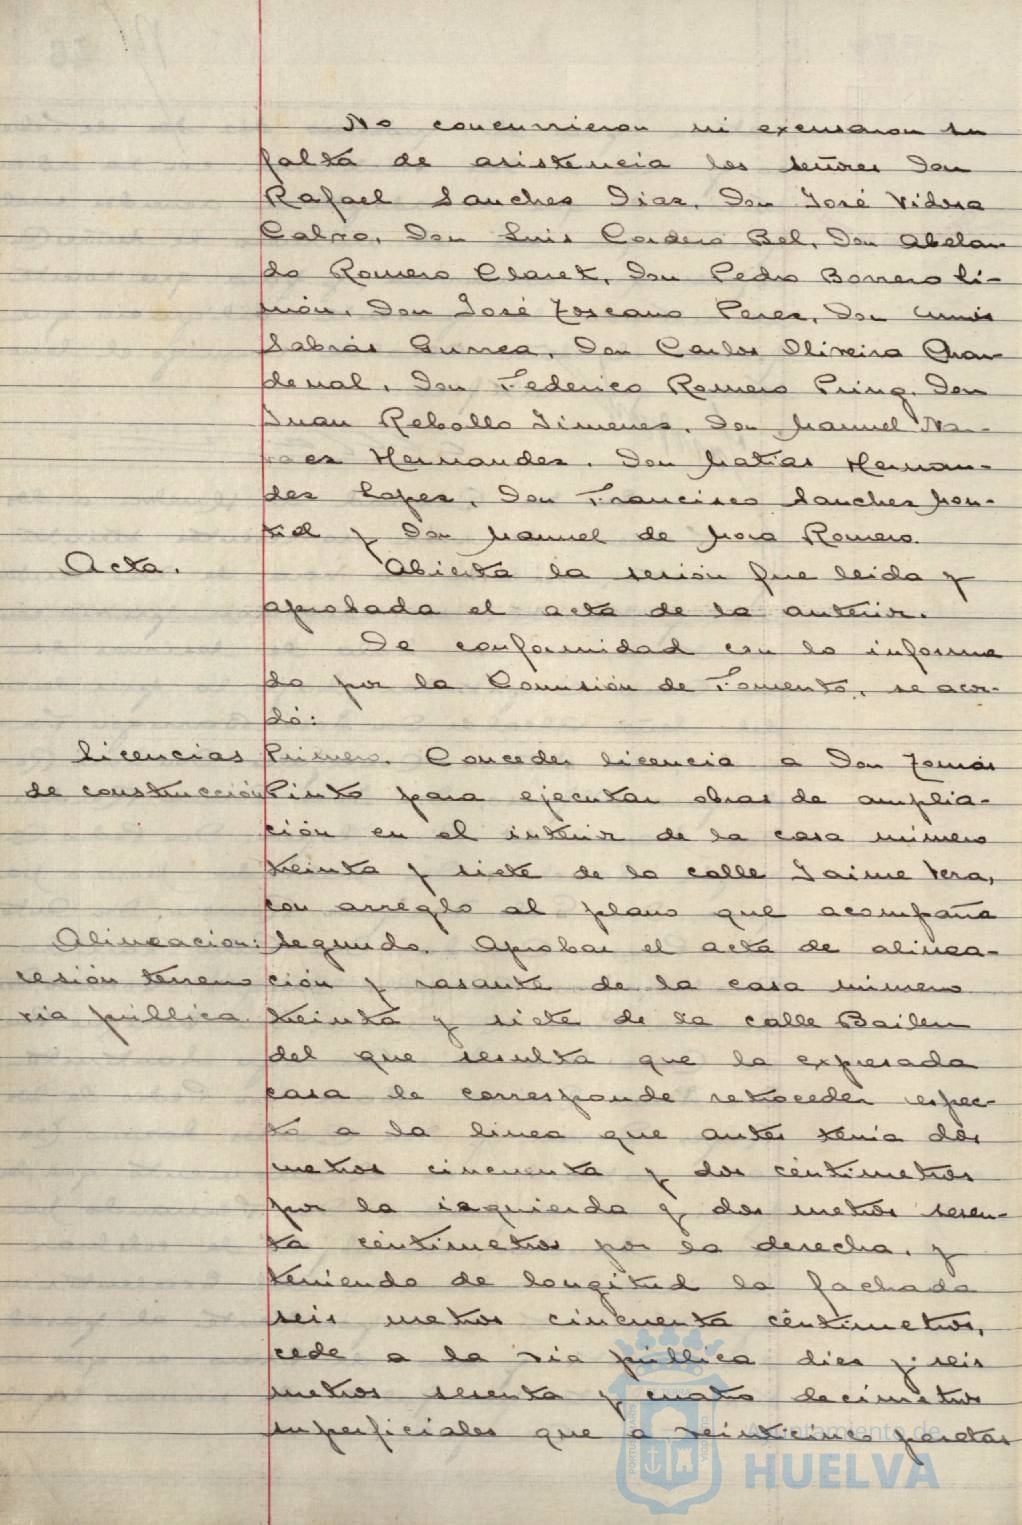 No concurrieron ni excusaron su
falta de asistencia los señores Don
Rafael Sanchez Diaz, Don José Vidosa
Calvo, Don Luis Cordero Bel, Don Abelar
do Romero Claret, Don Pedro Borrero Li-
món, Don José Toscano Perez, Don
Sabrás Gurrea, Don Carlos Oliveira Chan
denal, Don Federico Romero Puing, Don
Juan Rebollo Jimenez, Don Manuel Na-
raez Hernandez, Don Matías Hernan-
dez Lopez, Don Francisco Sanchez Mon-
tiel y Don Manuel de Mora Romero.
Acta.
Abierta la sesión fue leida y
aprobada el acta de la anterior.
De conformidad con lo informa
do por la Comisión de Fomento, se acor-
dó:
Licencias
de construcción
Primero. Conceder licencia a Don Tomás
Pinto para ejecutar obras de amplia-
ción en el interior de la casa número
treinta y siete de la calle Jaime Vera,
con arreglo al plano que acompaña
Alineacion:
cesión terreno
via pública.
Segundo. Aprobar el acta de alinea-
ción y rasante de la casa número
treinta y siete de la calle Bailen
del que resulta que la expresada
casa le corresponde retroceder respec-
to a la linea que antes tenia dos
metros cincuenta y dos céntimetros
por la izquierda y dos metros sesen-
ta céntimetros por la derecha, y
teniendo de longitud la fachada
seis metros cincuenta céntimetros,
cede a la via pública diez y seis
metros sesenta y cuatro decimetros
superficiales que a veinticinco pesetas
Ayuntamiento de
HUELVA